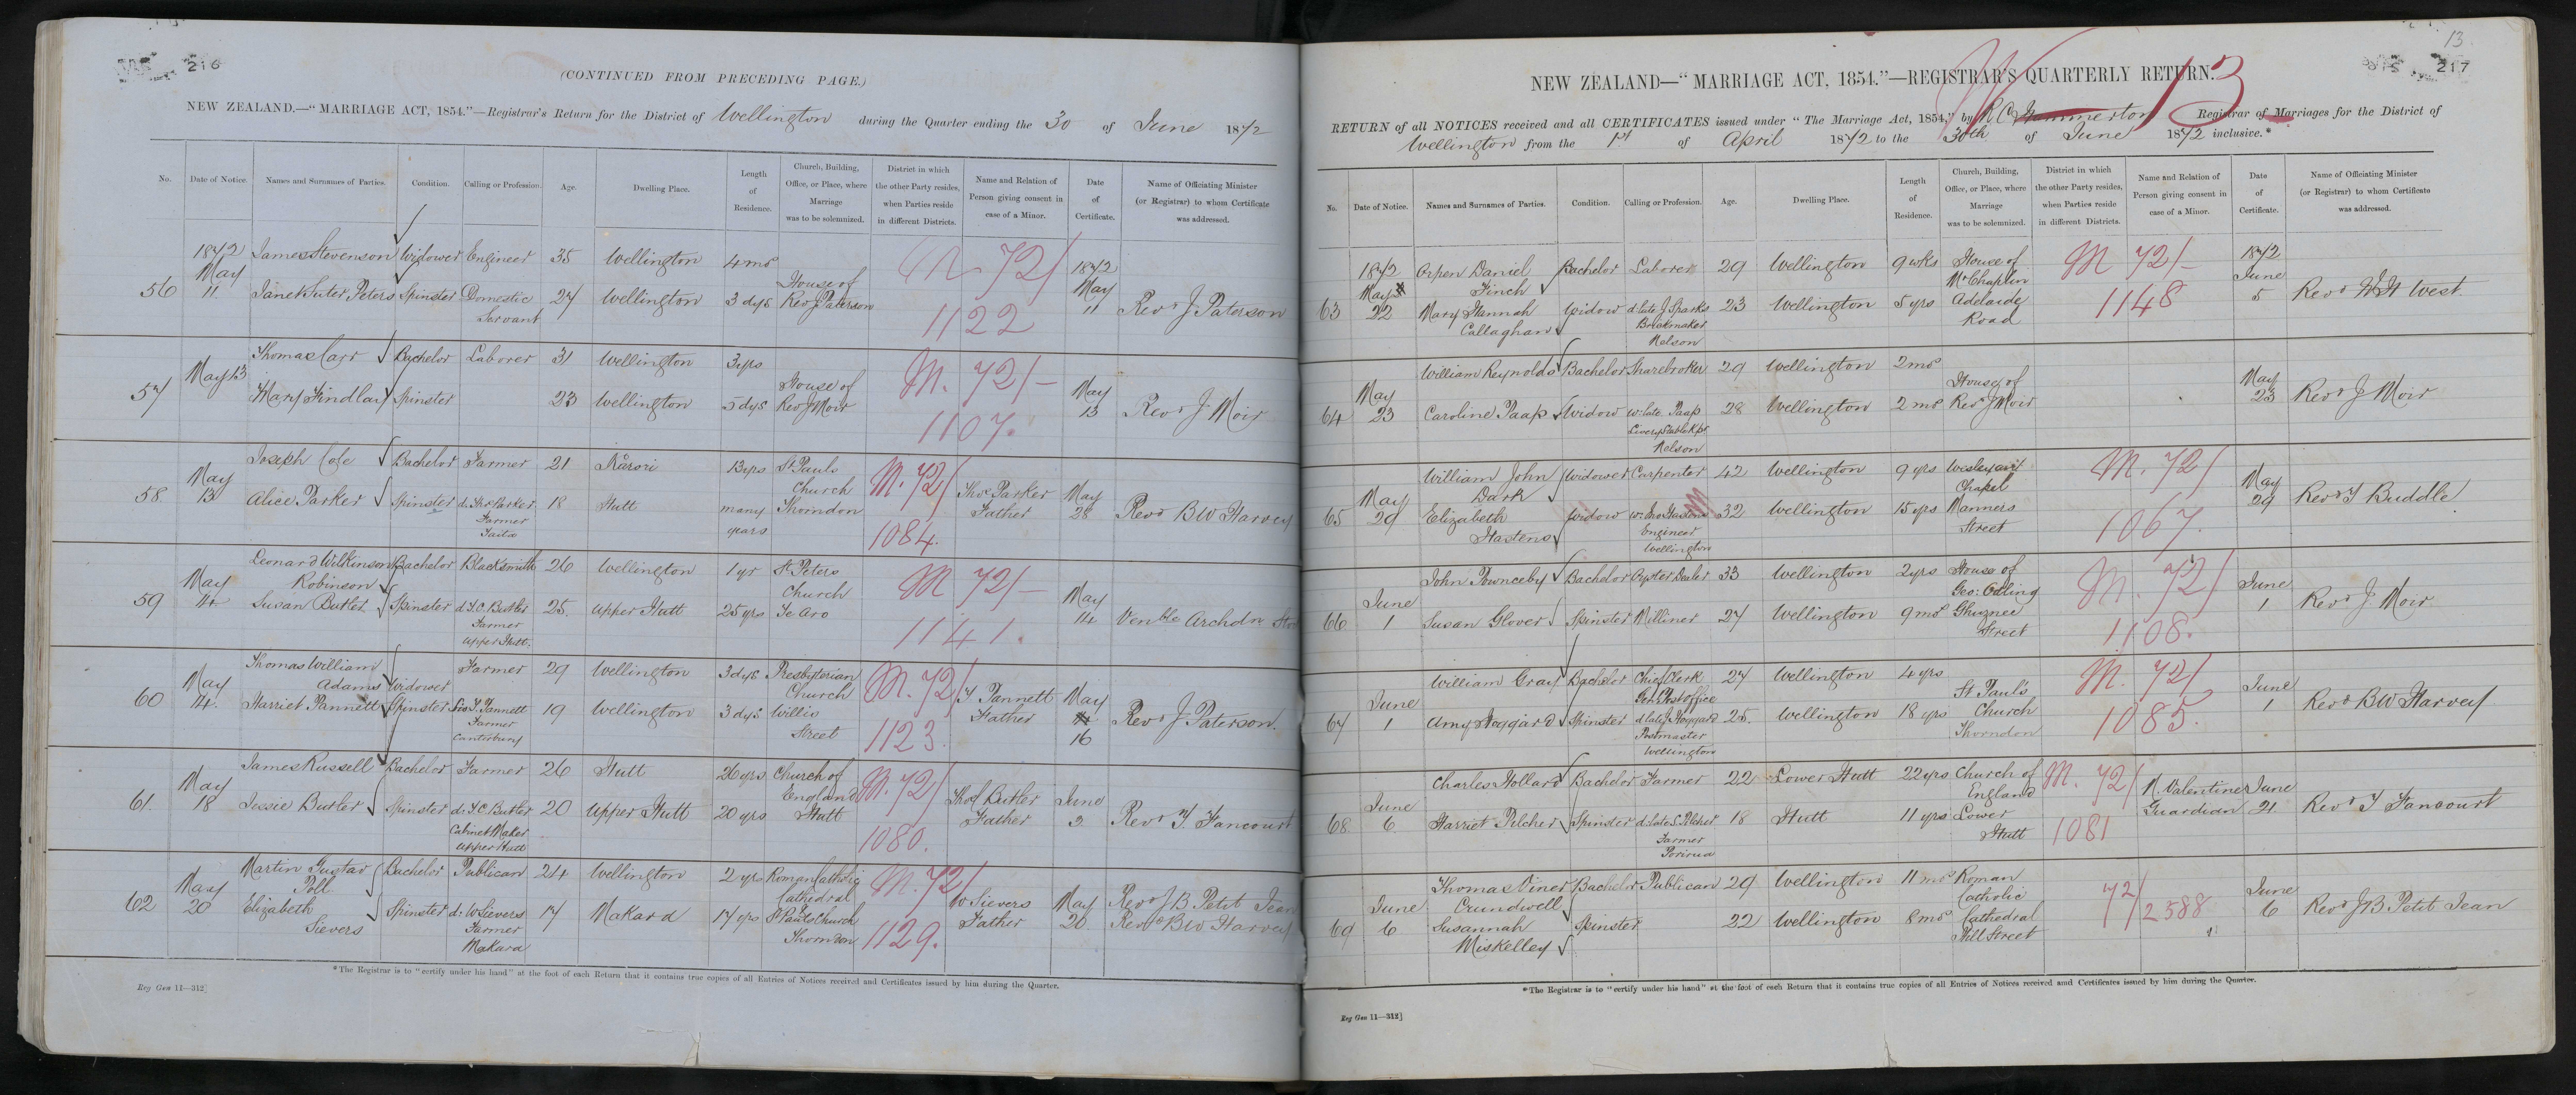 216
(CONTINUED FROM PRECEDING PAGE.)
NEW ZEALAND.—"MARRIAGE ACT, 1854."—Registrar's Return for the District of Wellington during the Quarter ending the 30 of June 1872
No. Date of Notice. Names and Surnames of Parties. Condition. Calling or Profession. Age. Dwelling Place. Length of Residence. Church, Building, Office, or Place, where Marriage was to be solemnized. District in which the other Party resides, when Parties reside in different Districts. Name and Relation of Person giving consent in case of a Minor. Date of Certificate. Name of Officiating Minister (or Registrar) to whom Certificate was addressed.
56 1872 May 11 James Stevenson Widower Engineer 35 Wellington 4 mos House of Rev J Paterson M 72/ 1122 1872 May 11 Revd J Paterson
Janet Suter Peters Spinster Domestic Servant 27 Wellington 3 dys
57 May 13 Thomas Carr Bachelor Laborer 31 Wellington 3 yrs House of Rev J Moir M. 72/- 1107. May 13 Revd J Moir
Mary Findlay Spinster 23 Wellington 5 dys
58 May 13 Joseph Cole Bachelor Farmer 21 Karori 13 yrs St Pauls Church Thorndon M. 72/ 1084. Thos Parker Father May 28 Revd BW Harvey
Alice Parker Spinster d. Thos Parker Farmer Taita 18 Hutt many years
59 May 14 Leonard Wilkinson Robinson Bachelor Blacksmith 26 Wellington 1 yr St Peters Church Te Aro M 72/- 1141. May 14 Venble Archdn
Susan Butler Spinster d. T.C. Butler Farmer Upper Hutt. 25. Upper Hutt 25 yrs
60 May 14. Thomas William Adams Widower Farmer 29 Wellington 3 dys Presbyterian Church Willis Street M. 72/ 1123. T Pannett Father May 16 Revd J Paterson.
Harriet Pannett Spinster T. Pannett Farmer Canterbury 19 Wellington 3 dys
61. May 18 James Russell Bachelor Farmer 26 Hutt 26 yrs Church of England Hutt M. 72/ 1080. Thos Butler Father June 2 Revd T. Fancourt
Jessie Butler Spinster d. T.C. Butler Cabinet Maker Upper Hutt 20 Upper Hutt 20 yrs
62 May 20 Martin Gustav Poll Bachelor Publican 24 Wellington 2 yrs Roman Catholic Cathedral St Pauls Church Thorndon M. 72/ 1129. W Sievers Father May 20 Revd J B Petit Jean Revd BW Harvey
Elizabeth Sievers Spinster d. W Sievers Farmer Makara 17 Makara 17 yrs
*The Registrar is to "certify under his hand" at the foot of each Return that it contains true copies of all Entries of Notices received and Certificates issued by him during the Quarter.
Reg Gen 11—312]
13
217
13
NEW ZEALAND—"MARRIAGE ACT, 1854."—REGISTRAR'S QUARTERLY RETURN.
RETURN of all NOTICES received and all CERTIFICATES issued under "The Marriage Act, 1854," by R C Hammerton Registrar of Marriages for the District of
Wellington from the 1st of April 1872 to the 30th of June 1872 inclusive.*
No. Date of Notice. Names and Surnames of Parties. Condition. Calling or Profession. Age. Dwelling Place. Length of Residence. Church, Building, Office, or Place, where Marriage was to be solemnized. District in which the other Party resides, when Parties reside in different Districts. Name and Relation of Person giving consent in case of a Minor. Date of Certificate. Name of Officiating Minister (or Registrar) to whom Certificate was addressed.
63 1872 May 22 Orpen Daniel Finch Bachelor Laborer 29 Wellington 9 wks House of Mr Chaplin Adelaide Road M 72/- 1148 1872 June 5 Revd W H West.
Mary Hannah Callaghan Widow d. late J Sparks Brickmaker Nelson 23 Wellington 5 yrs
64 May 23 William Reynolds Bachelor Sharebroker 29 Wellington 2 mos House of Revd J Moir May 23 Revd J Moir
Caroline Paap Widow w. late Paap Livery Stable Kpr Nelson 28 Wellington 2 mos
65 May 29 William John Dark Widower Carpenter 42 Wellington 9 yrs Wesleyan Chapel Manners Street M. 72/ 1067. May 29 Revd T Buddle
Elizabeth Hastens Widow w. Jno Hastens Engineer Wellington 32 Wellington 15 yrs
66 June 1 John Pownceby Bachelor Oyster Dealer 33 Wellington 2 yrs House of Geo: Odling Ghuznee Street M. 72/ 1108. June 1 Revd J Moir
Susan Glover Spinster Milliner 27 Wellington 9 mos
67 June 1 William Gray Bachelor Chief Clerk Genl Post office 27 Wellington 4 yrs St Paul's Church Thorndon M. 72/ 1085. June 1 Revd BW Harvey
Amy Hoggard Spinster d. late J. Hoggard Postmaster Wellington 25. Wellington 18 yrs
68. June 6 Charles Hollard Bachelor Farmer 22 Lower Hutt 22 yrs Church of England Lower Hutt M. 72/ 1081 N. Valentine Guardian June 21. Revd T Fancourt
Harriet Pilcher Spinster d. late S. Pilcher Farmer Porirua 18 Hutt 11 yrs
69 June 6 Thomas Viner Crundwell Bachelor Publican 29 Wellington 11 mos Roman Catholic Cathedral Hill Street 72/ 2588 June 6 Revd J B Petit Jean
Susannah Miskelley Spinster 22 Wellington 8 mos
*The Registrar is to "certify under his hand" at the foot of each Return that it contains true copies of all Entries of Notices received and Certificates issued by him during the Quarter.
Reg Gen 11—312]